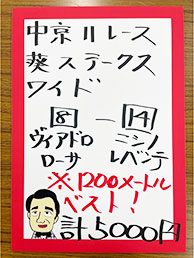 中京11レース
葵ステークス
ワイド
8 － 14
ヴィアドロローサ
ミシノレベンテ
※1200メートル
ベスト!
計5000円